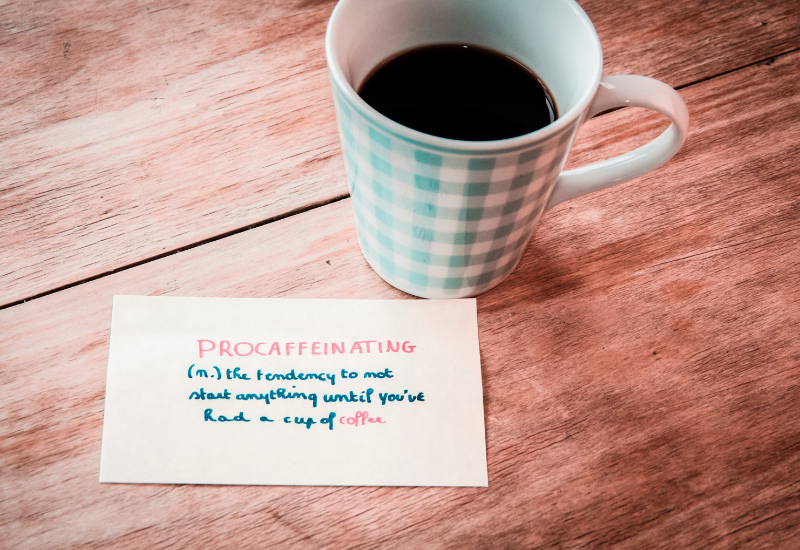 PROCAFFEINATING
(n.) the tendency to not
start anything until you've
had a cup of coffee